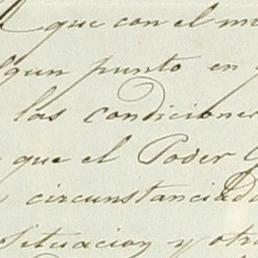 que con el
algun punto en
las condiciones
que el Poder
circunstanciada
situacion y otr